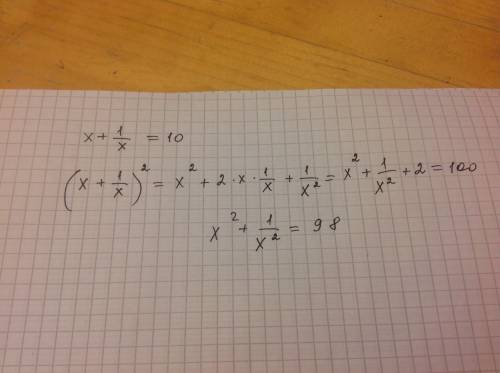 x + 1/x = 10
(x + 1/x)² = x² + 2 · x · 1/x + 1/x² = x² + 1/x² + 2 = 100
x² + 1/x² = 98